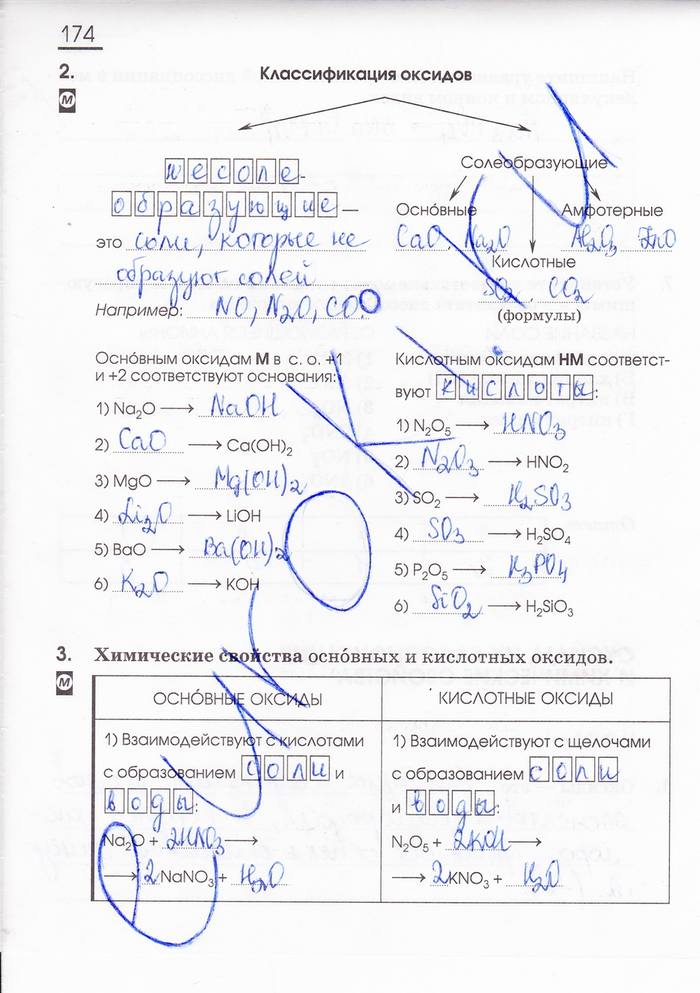 174
2. Классификация оксидов
М
несоле-
образующие —
это соли, которые не
образуют солей
Например: NO, N₂O, CO.
Солеобразующие
Оснóвные Амфотерные
CaO, Na₂O Al₂O₃ ZnO
Кислотные
SO₂ CO₂
(формулы)
Оснóвным оксидам М в с. о. +1
и +2 соответствуют основания:
1) Na₂O ⟶ NaOH
2) CaO ⟶ Ca(OH)₂
3) MgO ⟶ Mg(OH)₂
4) Li₂O ⟶ LiOH
5) BaO ⟶ Ba(OH)₂
6) K₂O ⟶ KOH
Кислотным оксидам НМ соответст-
вуют кислоты:
1) N₂O₅ ⟶ HNO₃
2) N₂O₃ ⟶ HNO₂
3) SO₂ ⟶ H₂SO₃
4) SO₃ ⟶ H₂SO₄
5) P₂O₅ ⟶ H₃PO₄
6) SiO₂ ⟶ H₂SiO₃
3. Химические свойства оснóвных и кислотных оксидов.
М
ОСНÓВНЫЕ ОКСИДЫ
1) Взаимодействуют с кислотами
с образованием соли и
воды:
Na₂O + 2HNO₃ ⟶
⟶ 2NaNO₃ + H₂O
КИСЛОТНЫЕ ОКСИДЫ
1) Взаимодействуют с щелочами
с образованием соли
и воды:
N₂O₅ + 2KOH ⟶
⟶ 2KNO₃ + H₂O